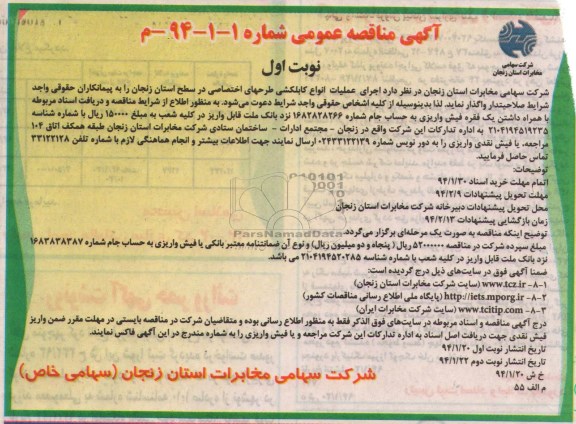 آگهی مناقصه عمومی شماره ۱-۱-۹۴-م
نوبت اول
شرکت سهامی
مخابرات استان زنجان
شرکت سهامی مخابرات استان زنجان در نظر دارد اجرای عملیات انواع کابلکشی طرحهای اختصاصی در سطح استان زنجان را به پیمانکاران حقوقی واجد
شرایط صلاحیتدار واگذار نماید. لذا بدینوسیله از کلیه اشخاص حقوقی واجد شرایط دعوت می‌شود. به منظور اطلاع از شرایط مناقصه و دریافت اسناد مربوطه
با همراه داشتن یک فقره فیش واریزی به حساب جام شماره ۱۶۸۲۸۲۸۲۶۶ نزد بانک ملت قابل واریز در کلیه شعب به مبلغ ۱۵۰۰۰۰ ریال با شناسه
۲۱۰۴۱۹۴۵۱۹۲۳۵ به اداره تدارکات این شرکت واقع در زنجان - مجتمع ادارات - ساختمان ستادی شرکت مخابرات استان زنجان طبقه همکف اتاق ۱۰۴
مراجعه، یا فیش نقدی واریزی را به دور نویس شماره ۰۲۴۳۳۱۲۲۱۳۹ ارسال نمایند جهت اطلاعات بیشتر و انجام هماهنگی لازم با شماره تلفن ۳۳۱۲۲۱۲۸
تماس حاصل فرمایید.
توضیحات:
اتمام مهلت خرید اسناد ۹۴/۱/۳۰
مهلت تحویل پیشنهادات ۹۴/۲/۹
محل تحویل پیشنهادات دبیرخانه شرکت مخابرات استان زنجان
زمان بازگشایی پیشنهادات ۹۴/۲/۱۳
توضیح اینکه مناقصه به صورت یک مرحله‌ای برگزار می‌گردد.
مبلغ سپرده شرکت در مناقصه ۵۲۰۰۰۰۰۰ ریال (پنجاه و دو میلیون ریال) و نوع آن ضمانتنامه معتبر بانکی یا فیش واریزی به حساب جام شماره ۱۶۸۳۸۳۸۳۸۷
نزد بانک ملت قابل واریز در کلیه شعب با شماره شناسه ۲۱۰۴۱۹۴۵۲۰۲۸۵ می باشد.
ضمنا آگهی فوق در سایت‌های ذیل درج گردیده است:
۸-۱- www.tcz.ir (سایت شرکت مخابرات استان زنجان)
۸-۲- http://iets.mporg.ir (پایگاه ملی اطلاع رسانی مناقصات کشور)
۸-۳- www.tcitip.com (سایت شرکت مخابرات ایران)
درج آگهی مناقصه و اسناد مربوطه در سایت‌های فوق الذکر فقط به منظور اطلاع رسانی بوده و متقاضیان شرکت در مناقصه بایستی در مهلت مقرر ضمن واریز
فیش نقدی جهت دریافت اصل اسناد به اداره تدارکات این شرکت مراجعه و یا فیش واریزی را به شماره مندرج در این آگهی فاکس نمایند.
تاریخ انتشار نوبت اول ۹۴/۱/۲۰
تاریخ انتشار نوبت دوم ۹۴/۱/۲۲
خ ش ۹۴/۱/۲۰
م الف ۵۵
شرکت سهامی مخابرات استان زنجان (سهامی خاص)
ParsNamadData